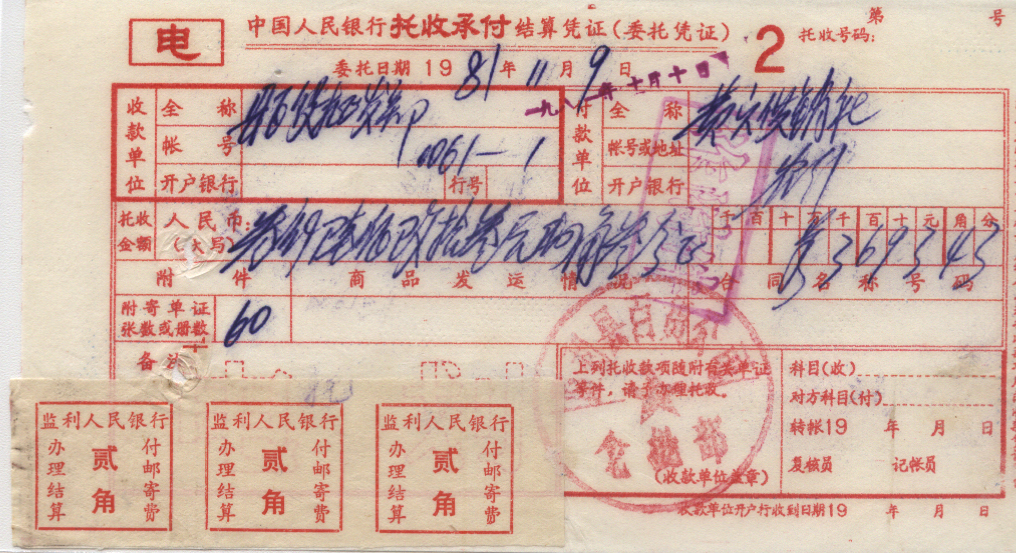 电
中国人民银行托收承付结算凭证（委托凭证）
2
第 号
托收号码：
委托日期 1981年11月9日
一九八一年十一月十日
收款单位
全称
帐号 0061-1
开户银行 行号
付款单位
全称
帐号或地址
开户银行
托收金额
人民币：（大写） 叁仟陆佰玖拾叁元肆角叁分正
千百十万千百十元角分
¥369343
附件 商品发运情况 合同名称号码
附寄单证张数或册数
60
备注
上列托收款项随附有关单证等件，请予办理托收。
（收款单位盖章）
科目（收）
对方科目（付）
转帐19 年 月 日
复核员 记帐员
收款单位开户行收到日期19 年 月 日
县百货公司
批部
监利人民银行
办理结算
贰角
付邮寄费
监利人民银行
办理结算
贰角
付邮寄费
监利人民银行
办理结算
贰角
付邮寄费